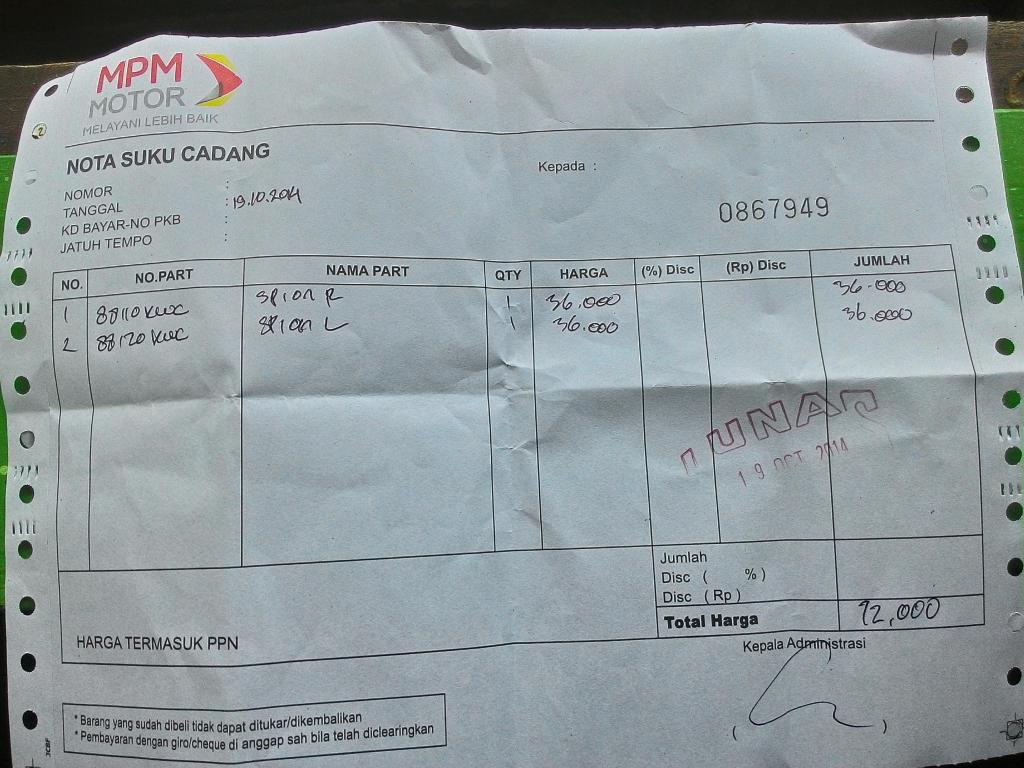 MPM
MOTOR
MELAYANI LEBIH BAIK
NOTA SUKU CADANG
Kepada :
NOMOR :
TANGGAL : 19.10.2014
KD BAYAR-NO PKB :
JATUH TEMPO :
0867949
NO. NO.PART NAMA PART QTY HARGA (%) Disc (Rp) Disc JUMLAH
1 88110 KWC SPION R 1 36.000 36.000
2 88120 KWC SPION L 1 36.000 36.000
LUNAS
19 OCT 2014
Jumlah
Disc ( %)
Disc (Rp)
Total Harga 72,000
HARGA TERMASUK PPN
Kepala Administrasi
* Barang yang sudah dibeli tidak dapat ditukar/dikembalikan
* Pembayaran dengan giro/cheque di anggap sah bila telah diclearingkan
( )